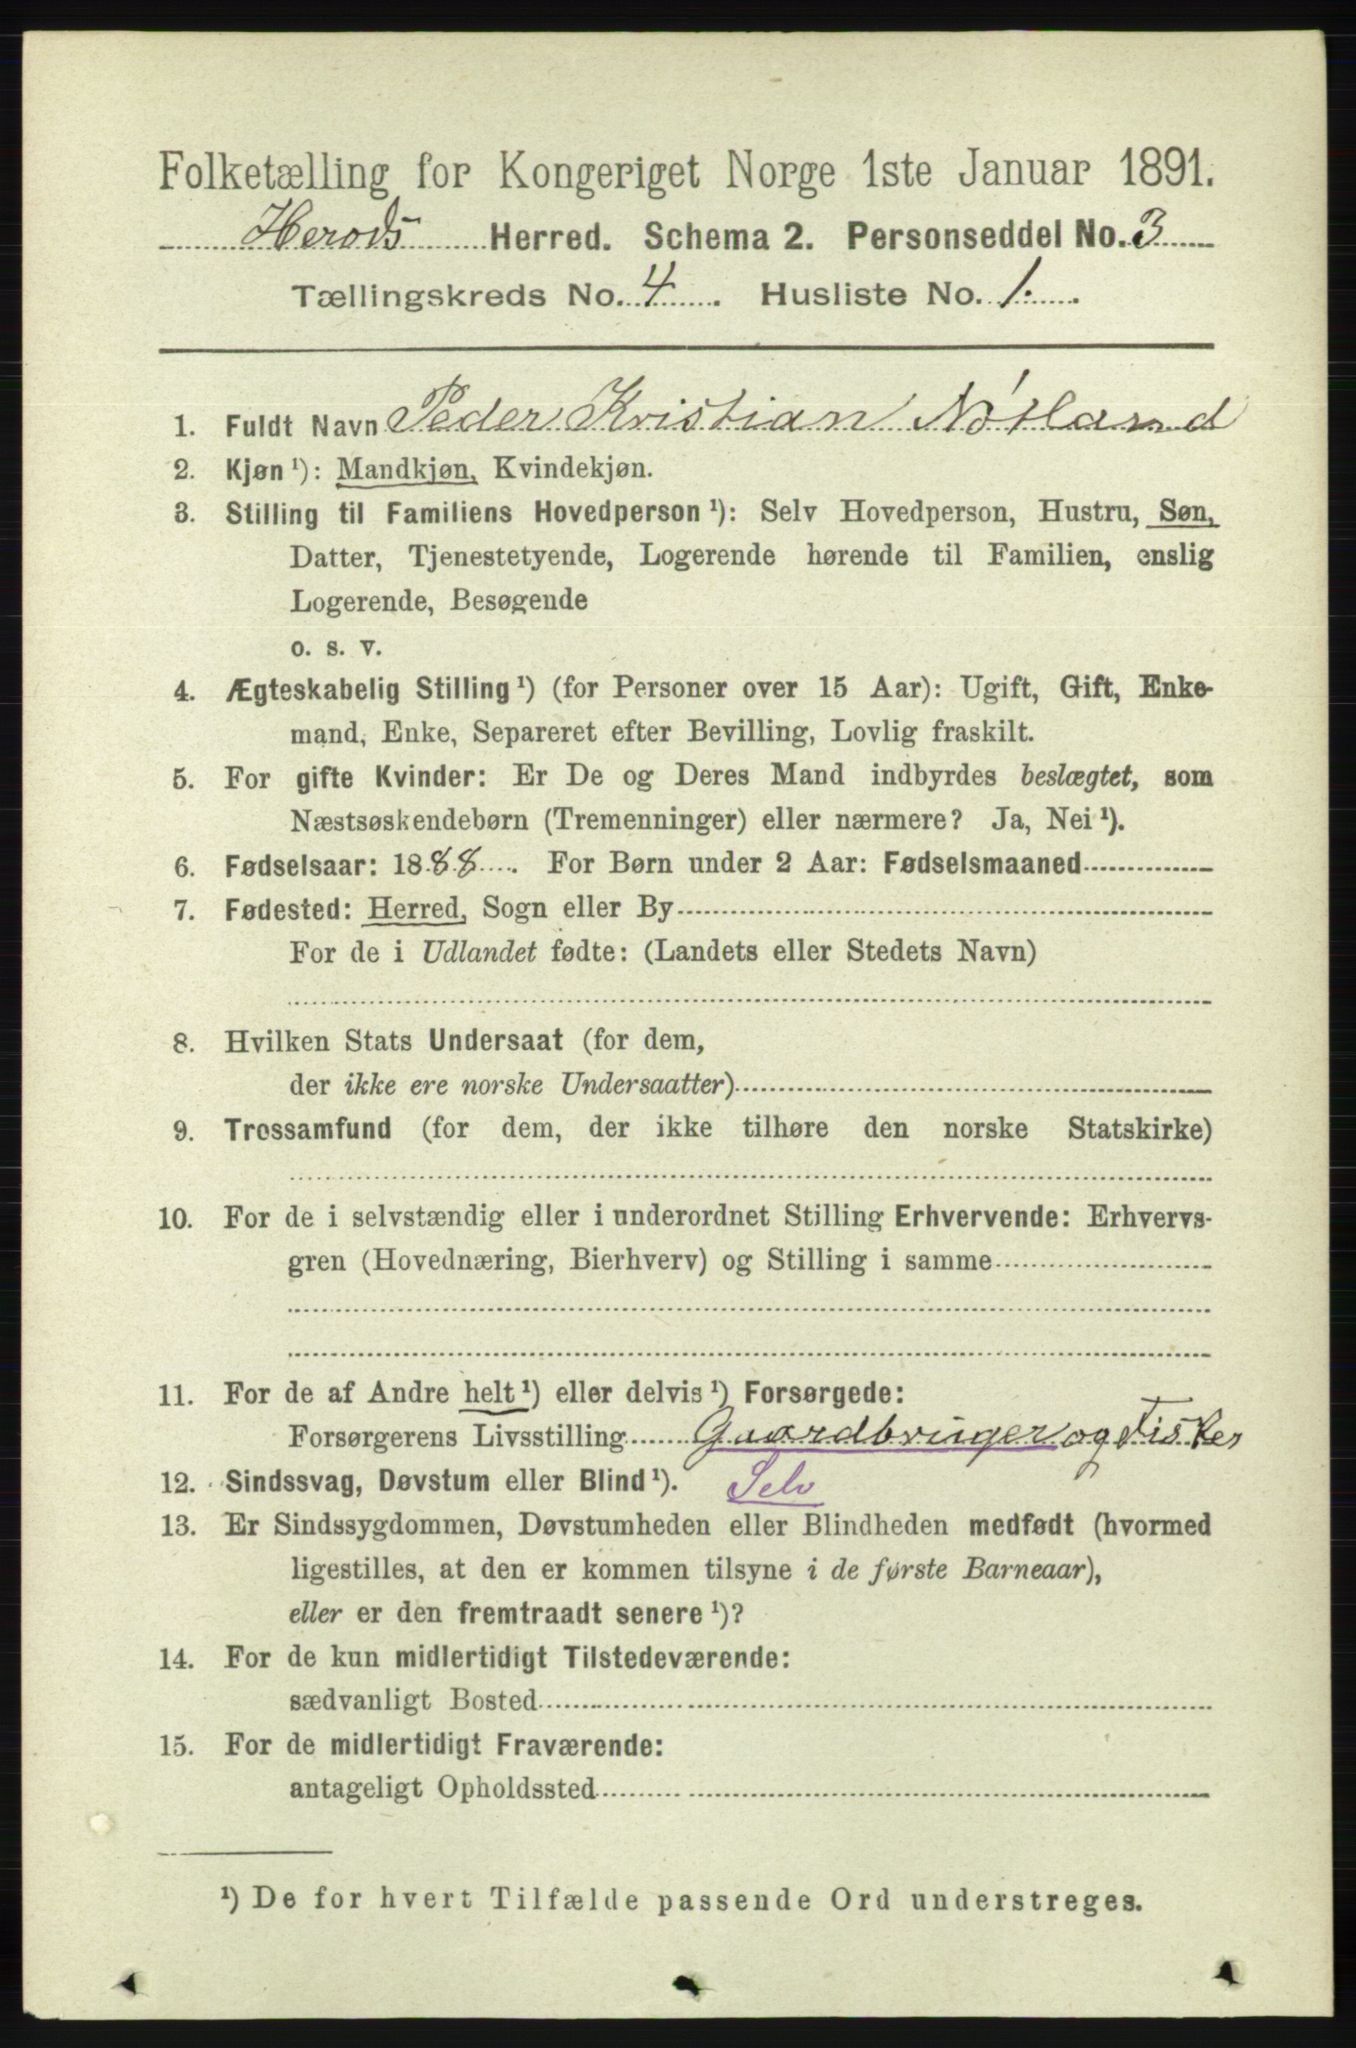 Folketælling for Kongeriget Norge 1ste Januar 1891.
Herods Herred. Schema 2. Personseddel No. 3
Tællingskreds No. 4. Husliste No. 1.
1. Fuldt Navn Peder Kristian Nótland
2. Kjøn ¹): Mandkjøn, Kvindekjøn.
3. Stilling til Familiens Hovedperson ¹): Selv Hovedperson, Hustru, Søn,
Datter, Tjenestetyende, Logerende hørende til Familien, enslig
Logerende, Besøgende
o. s. v.
4. Ægteskabelig Stilling ¹) (for Personer over 15 Aar): Ugift, Gift, Enke-
mand, Enke, Separeret efter Bevilling, Lovlig fraskilt.
5. For gifte Kvinder: Er De og Deres Mand indbyrdes beslægtet, som
Næstsøskendebørn (Tremenninger) eller nærmere? Ja, Nei ¹).
6. Fødselsaar: 1888. For Børn under 2 Aar: Fødselsmaaned
7. Fødested: Herred, Sogn eller By
For de i Udlandet fødte: (Landets eller Stedets Navn)
8. Hvilken Stats Undersaat (for dem,
der ikke ere norske Undersaatter)
9. Trossamfund (for dem, der ikke tilhøre den norske Statskirke)
10. For de i selvstændig eller i underordnet Stilling Erhvervende: Erhvervs-
gren (Hovednæring, Bierhverv) og Stilling i samme
11. For de af Andre helt ¹) eller delvis ¹) Forsørgede:
Forsørgerens Livsstilling Gaardbruger og Fisker
12. Sindssvag, Døvstum eller Blind ¹). Selv
13. Er Sindssygdommen, Døvstumheden eller Blindheden medfødt (hvormed
ligestilles, at den er kommen tilsyne i de første Barneaar),
eller er den fremtraadt senere ¹)?
14. For de kun midlertidigt Tilstedeværende:
sædvanligt Bosted
15. For de midlertidigt Fraværende:
antageligt Opholdssted
¹) De for hvert Tilfælde passende Ord understreges.